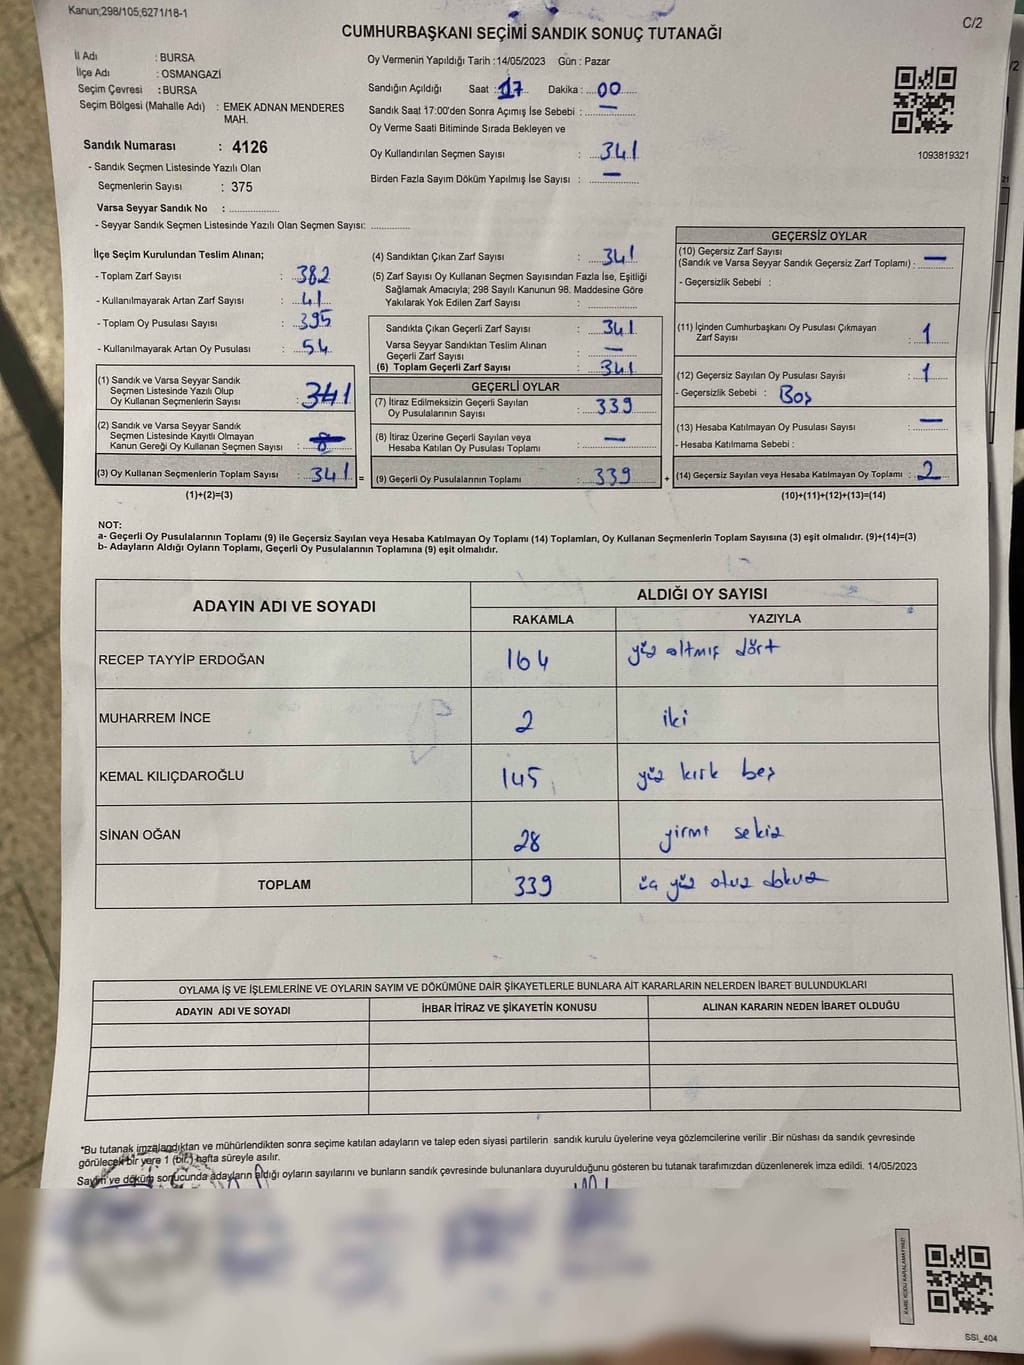 Kanun;298/105;6271/18-1
C/2
CUMHURBAŞKANI SEÇİMİ SANDIK SONUÇ TUTANAĞI
İl Adı : BURSA
İlçe Adı : OSMANGAZİ
Seçim Çevresi : BURSA
Seçim Bölgesi (Mahalle Adı) : EMEK ADNAN MENDERES
MAH.
Sandık Numarası : 4126
- Sandık Seçmen Listesinde Yazılı Olan
Seçmenlerin Sayısı : 375
Varsa Seyyar Sandık No : ..................
- Seyyar Sandık Seçmen Listesinde Yazılı Olan Seçmen Sayısı: ..............
Oy Vermenin Yapıldığı Tarih : 14/05/2023 Gün : Pazar
Sandığın Açıldığı Saat : 17 Dakika : 00
Sandık Saat 17:00'den Sonra Açımış İse Sebebi : —
Oy Verme Saati Bitiminde Sırada Bekleyen ve
Oy Kullandırılan Seçmen Sayısı : 341
Birden Fazla Sayım Döküm Yapılmış İse Sayısı : —
1093819321
İlçe Seçim Kurulundan Teslim Alınan;
- Toplam Zarf Sayısı : 382
- Kullanılmayarak Artan Zarf Sayısı : 41
- Toplam Oy Pusulası Sayısı : 395
- Kullanılmayarak Artan Oy Pusulası : 54
(1) Sandık ve Varsa Seyyar Sandık
Seçmen Listesinde Yazılı Olup
Oy Kullanan Seçmenlerin Sayısı : 341
(2) Sandık ve Varsa Seyyar Sandık
Seçmen Listesinde Kayıtlı Olmayan
Kanun Gereği Oy Kullanan Seçmen Sayısı :
(3) Oy Kullanan Seçmenlerin Toplam Sayısı : 341
(1)+(2)=(3)
(4) Sandıktan Çıkan Zarf Sayısı : 341
(5) Zarf Sayısı Oy Kullanan Seçmen Sayısından Fazla İse, Eşitliği
Sağlamak Amacıyla; 298 Sayılı Kanunun 98. Maddesine Göre
Yakılarak Yok Edilen Zarf Sayısı : ..............
Sandıkta Çıkan Geçerli Zarf Sayısı : 341
Varsa Seyyar Sandıktan Teslim Alınan
Geçerli Zarf Sayısı : —
(6) Toplam Geçerli Zarf Sayısı : 341
GEÇERLİ OYLAR
(7) İtiraz Edilmeksizin Geçerli Sayılan
Oy Pusulalarının Sayısı : 339
(8) İtiraz Üzerine Geçerli Sayılan veya
Hesaba Katılan Oy Pusulası Toplamı : —
= (9) Geçerli Oy Pusulalarının Toplamı : 339
GEÇERSİZ OYLAR
(10) Geçersiz Zarf Sayısı
(Sandık ve Varsa Seyyar Sandık Geçersiz Zarf Toplamı) : —
- Geçersizlik Sebebi :
(11) İçinden Cumhurbaşkanı Oy Pusulası Çıkmayan
Zarf Sayısı : 1
(12) Geçersiz Sayılan Oy Pusulası Sayısı : 1
- Geçersizlik Sebebi : Boş
(13) Hesaba Katılmayan Oy Pusulası Sayısı : —
- Hesaba Katılmama Sebebi :
+ (14) Geçersiz Sayılan veya Hesaba Katılmayan Oy Toplamı : 2
(10)+(11)+(12)+(13)=(14)
NOT:
a- Geçerli Oy Pusulalarının Toplamı (9) ile Geçersiz Sayılan veya Hesaba Katılmayan Oy Toplamı (14) Toplamları, Oy Kullanan Seçmenlerin Toplam Sayısına (3) eşit olmalıdır. (9)+(14)=(3)
b- Adayların Aldığı Oyların Toplamı, Geçerli Oy Pusulalarının Toplamına (9) eşit olmalıdır.
ADAYIN ADI VE SOYADI ALDIĞI OY SAYISI
RAKAMLA YAZIYLA
RECEP TAYYİP ERDOĞAN 164 yüz altmış dört
MUHARREM İNCE 2 iki
KEMAL KILIÇDAROĞLU 145 yüz kırk beş
SİNAN OĞAN 28 yirmi sekiz
TOPLAM 339 üç yüz otuz dokuz
OYLAMA İŞ VE İŞLEMLERİNE VE OYLARIN SAYIM VE DÖKÜMÜNE DAİR ŞİKAYETLERLE BUNLARA AİT KARARLARIN NELERDEN İBARET BULUNDUKLARI
ADAYIN ADI VE SOYADI İHBAR İTİRAZ VE ŞİKAYETİN KONUSU ALINAN KARARIN NEDEN İBARET OLDUĞU
*Bu tutanak imzalandıktan ve mühürlendikten sonra seçime katılan adayların ve talep eden siyasi partilerin sandık kurulu üyelerine veya gözlemcilerine verilir .Bir nüshası da sandık çevresinde
görülecek bir yere 1 (bir.) hafta süreyle asılır.
Sayım ve döküm sonucunda adayların aldığı oyların sayılarını ve bunların sandık çevresinde bulunanlara duyurulduğunu gösteren bu tutanak tarafımızdan düzenlenerek imza edildi. 14/05/2023
KARE KODU KARALAMAYINIZ!
SSİ_404